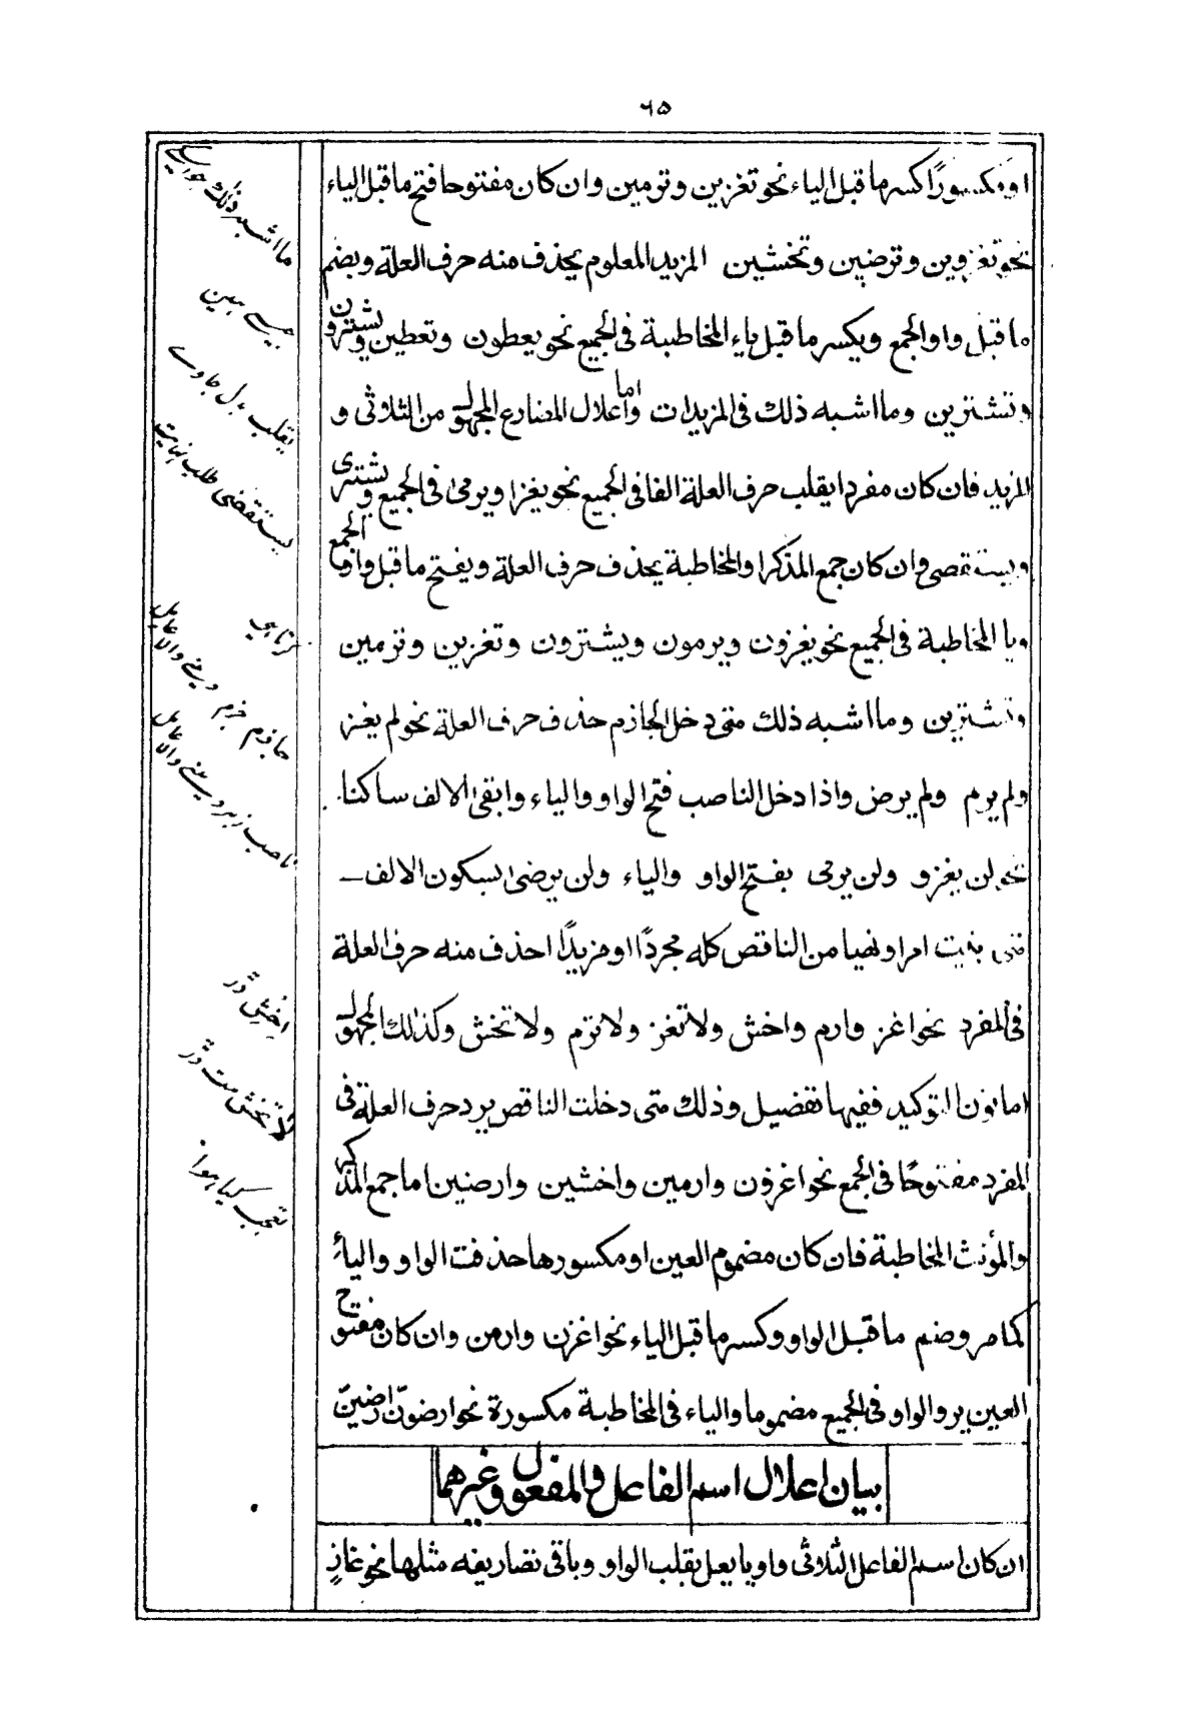 ٦٥
او مكسورًا كسر ما قبل الياء نحو تغزين وترمين وان كان مفتوحا فتح ما قبل الياء
نحو تغزوين وترضين وتخشين المزيد المعلوم يحذف منه حرف العلة ويضم
ما قبل واو الجمع ويكسر ما قبل ياء المخاطبة فى الجميع نحو يعطون وتعطين ويشترون
وتشترين وما اشبه ذلك فى المزيدات واما اعلال المضارع المجهول من الثلاثى و
المزيد فان كان مفردا يقلب حرف العلة الفا فى الجميع نحو يغزا ويرمى فى الجميع ويشترى
ويستقصى وان كان جمع المذكر او المخاطبة يحذف حرف العلة ويفتح ما قبل واو الجمع
ويا المخاطبة فى الجميع نحو يغزون ويرمون ويشترون وتغزين وترمين
وتشترين وما اشبه ذلك متى دخل الجازم حذف حرف العلة نحو لم يغز
ولم يرم ولم يرض واذا دخل الناصب فتح الواو والياء وابقى الالف ساكنا
نحو لن يغزو ولن يرمى بفتح الواو والياء ولن يرضى بسكون الالف ـ
فمتى بنيت امرا ونهيا من الناقص كله مجردًا او مزيدًا احذف منه حرف العلة
فى المفرد نحو اغز وارم واخش ولا تغز ولا ترم ولا تخش وكذلك المجهول
اما نون التوكيد ففيها تفضيل وذلك متى دخلت الناقص يرد حرف العلة فى
المفرد مفتوحًا فى الجمع نحو اغزون وارمين واخشين وارضين اما جمع المذكر
والمؤنث المخاطبة فان كان مضموم العين او مكسورها حذفت الواو والياء
كما مر وضم ما قبل الواو وكسر ما قبل الياء نحو اغزن وارمن وان كان مفتوح
العين يرد الواو فى الجميع مضموما والياء فى المخاطبة مكسورة نحو ارضونّ ارضينّ
بيان اعلال اسم الفاعل والمفعول وغيرهما
ان كان اسم الفاعل الثلاثى واويا يعل بقلب الواو وباقى تصاريفه مثلها نحو غازٍ
ما اشبہ ذلك جو اسے
جیسے ہیں
یقلب بدل جاوے
یستقضی طلب نہایت
کرتا ہے
جازم جزم دینے والا عامل
ناصب زبر دینے والا عامل
اخش ڈر
لا تخش مت ڈر